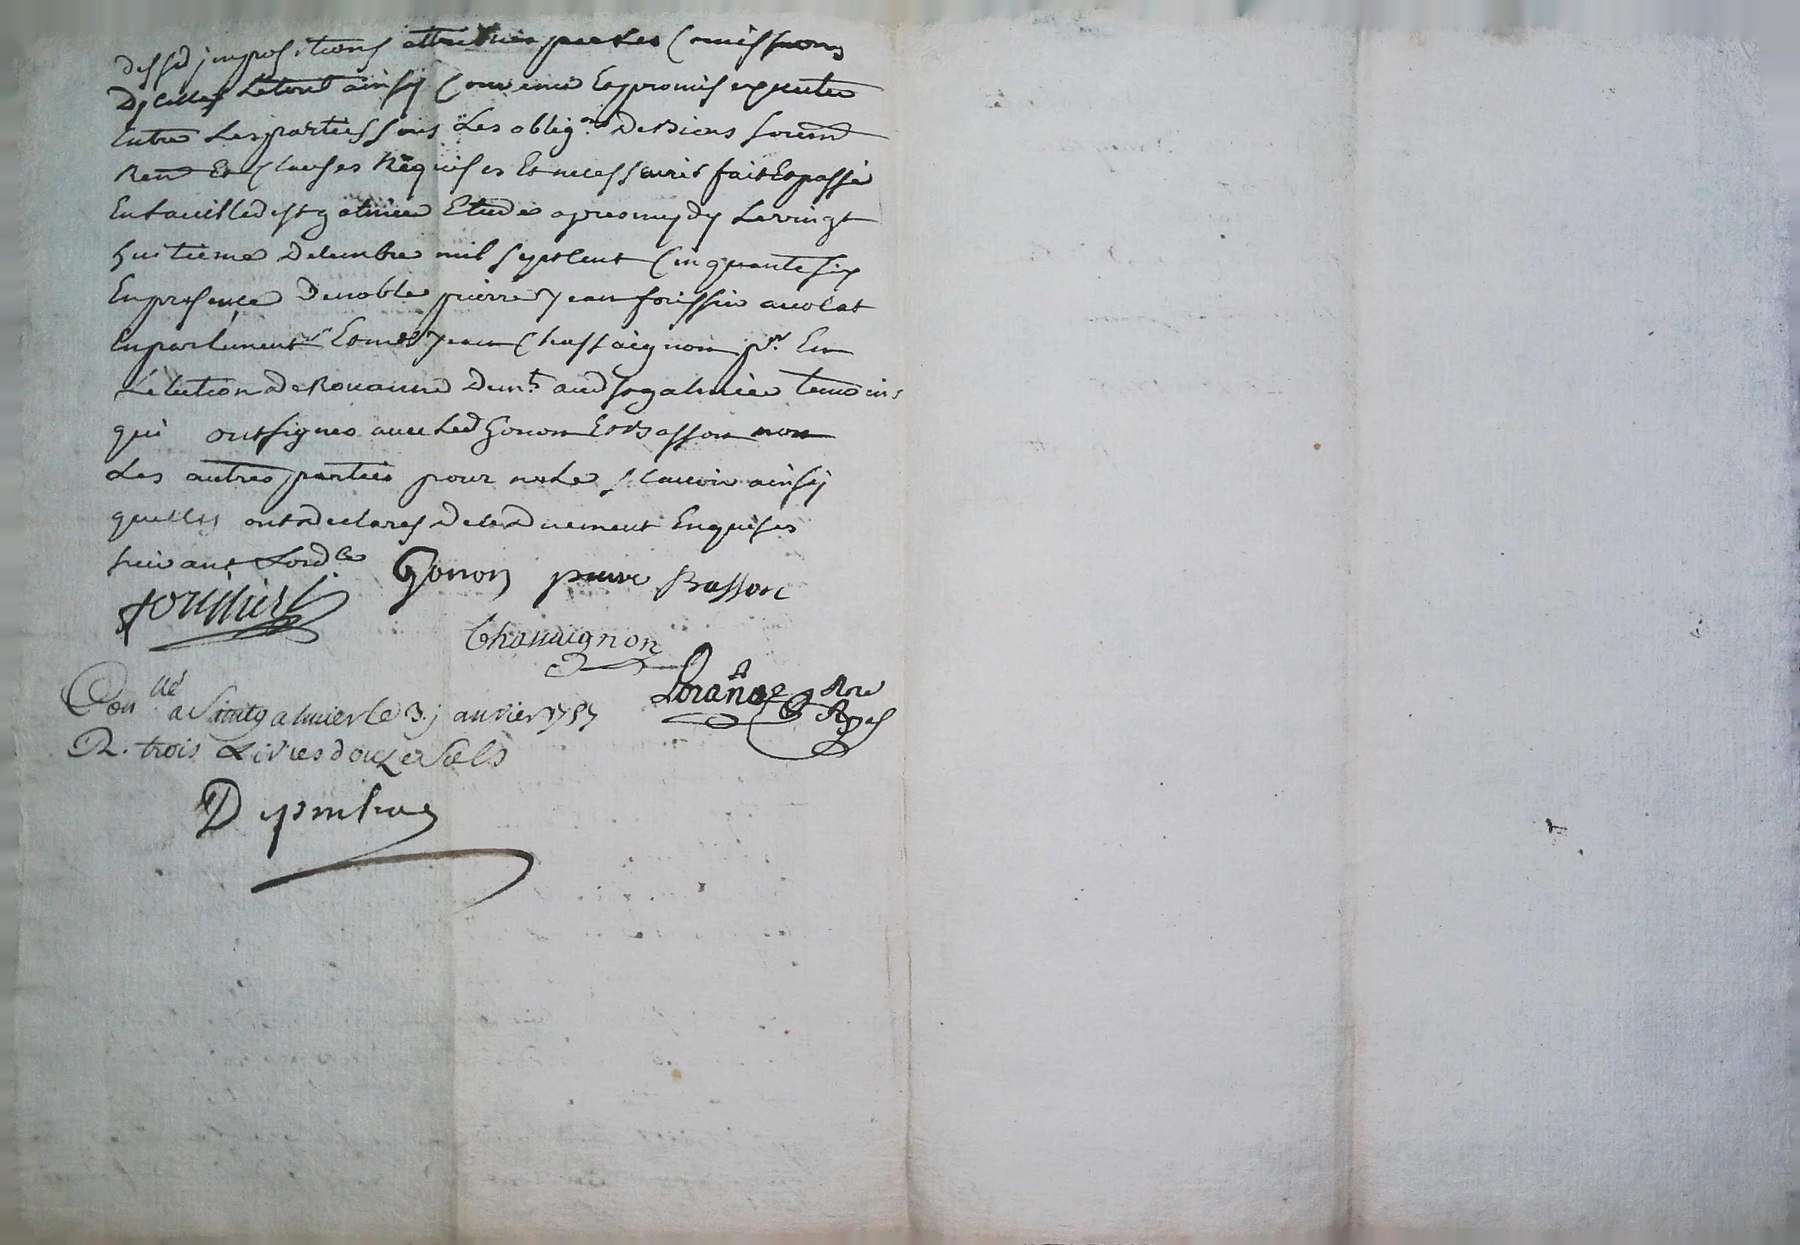 desd impositions attribuées par les Commissions
D'jcelles Le tout ainsy Convenu Et promis executer
Entre Les parties sous Les obligons De Biens soumd
Rend Et Clauses Requises Et necessaires fait Et passé
En La ville de st galmier Etude apres mydy Le vingt
huitieme decembre mil sept Cent Cinquante six
En presence De noble pierre jean forissier avocat
En parlement Et me jean Chassaignon pr En
L'election De Rouanne Demts aud st galmier temoins
qui ont signes avec Led Gonon Et Basson non
Les autres parties pour ne Le sçavoir ainsy
quelles ont declarés de ce Duement Enquises
suivant Lordce
forissier Gonon pierre Basson
Chassaignon
Conllé a Saint galmier le 3 janvier 1757
R. trois Livres douze Sols